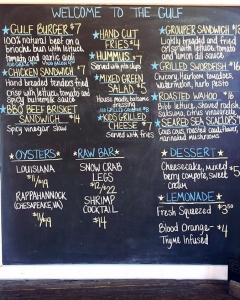 WELCOME TO THE GULF
GULF BURGER $7
100% natural beef on a
brioche bun with lettuce,
tomato and garlic aioli
CHICKEN SANDWICH $7
Hand breaded tenders fried
crisp with lettuce, tomato and
spicy buttermilk sauce
BBQ BEEF BRISKET
SANDWICH $14
Spicy vinegar slaw
HAND CUT
FRIES $4
HUMMUS
Served with pita
MIXED GREEN
SALAD $5
House made balsamic
KIDS GRILLED
CHEESE $7
Served with fries
GROUPER SANDWICH
Lightly breaded and fried
crisp with lettuce, tomato
and
GRILLED SWORDFISH $16
Chicory, Heirloom tomatoes,
watermelon,
ROASTED WAHOO $16
Bibb lettuce, shaved radish,
SEARED SEA SCALLOPS
Cous cous, roasted cauliflower,
mushroom
OYSTERS
LOUISIANA
$11/$19
RAPPAHANNOCK
(CHESAPEAKE, VA)
$11/$19
RAW BAR
SNOW CRAB
LEGS
$12/$22
SHRIMP
COCKTAIL
$14
DESSERT
Cheesecake, mixed $5
berry compote, sweet
cream
LEMONADE
Fresh Squeezed $3.50
Blood Orange- $4
Thyme Infused